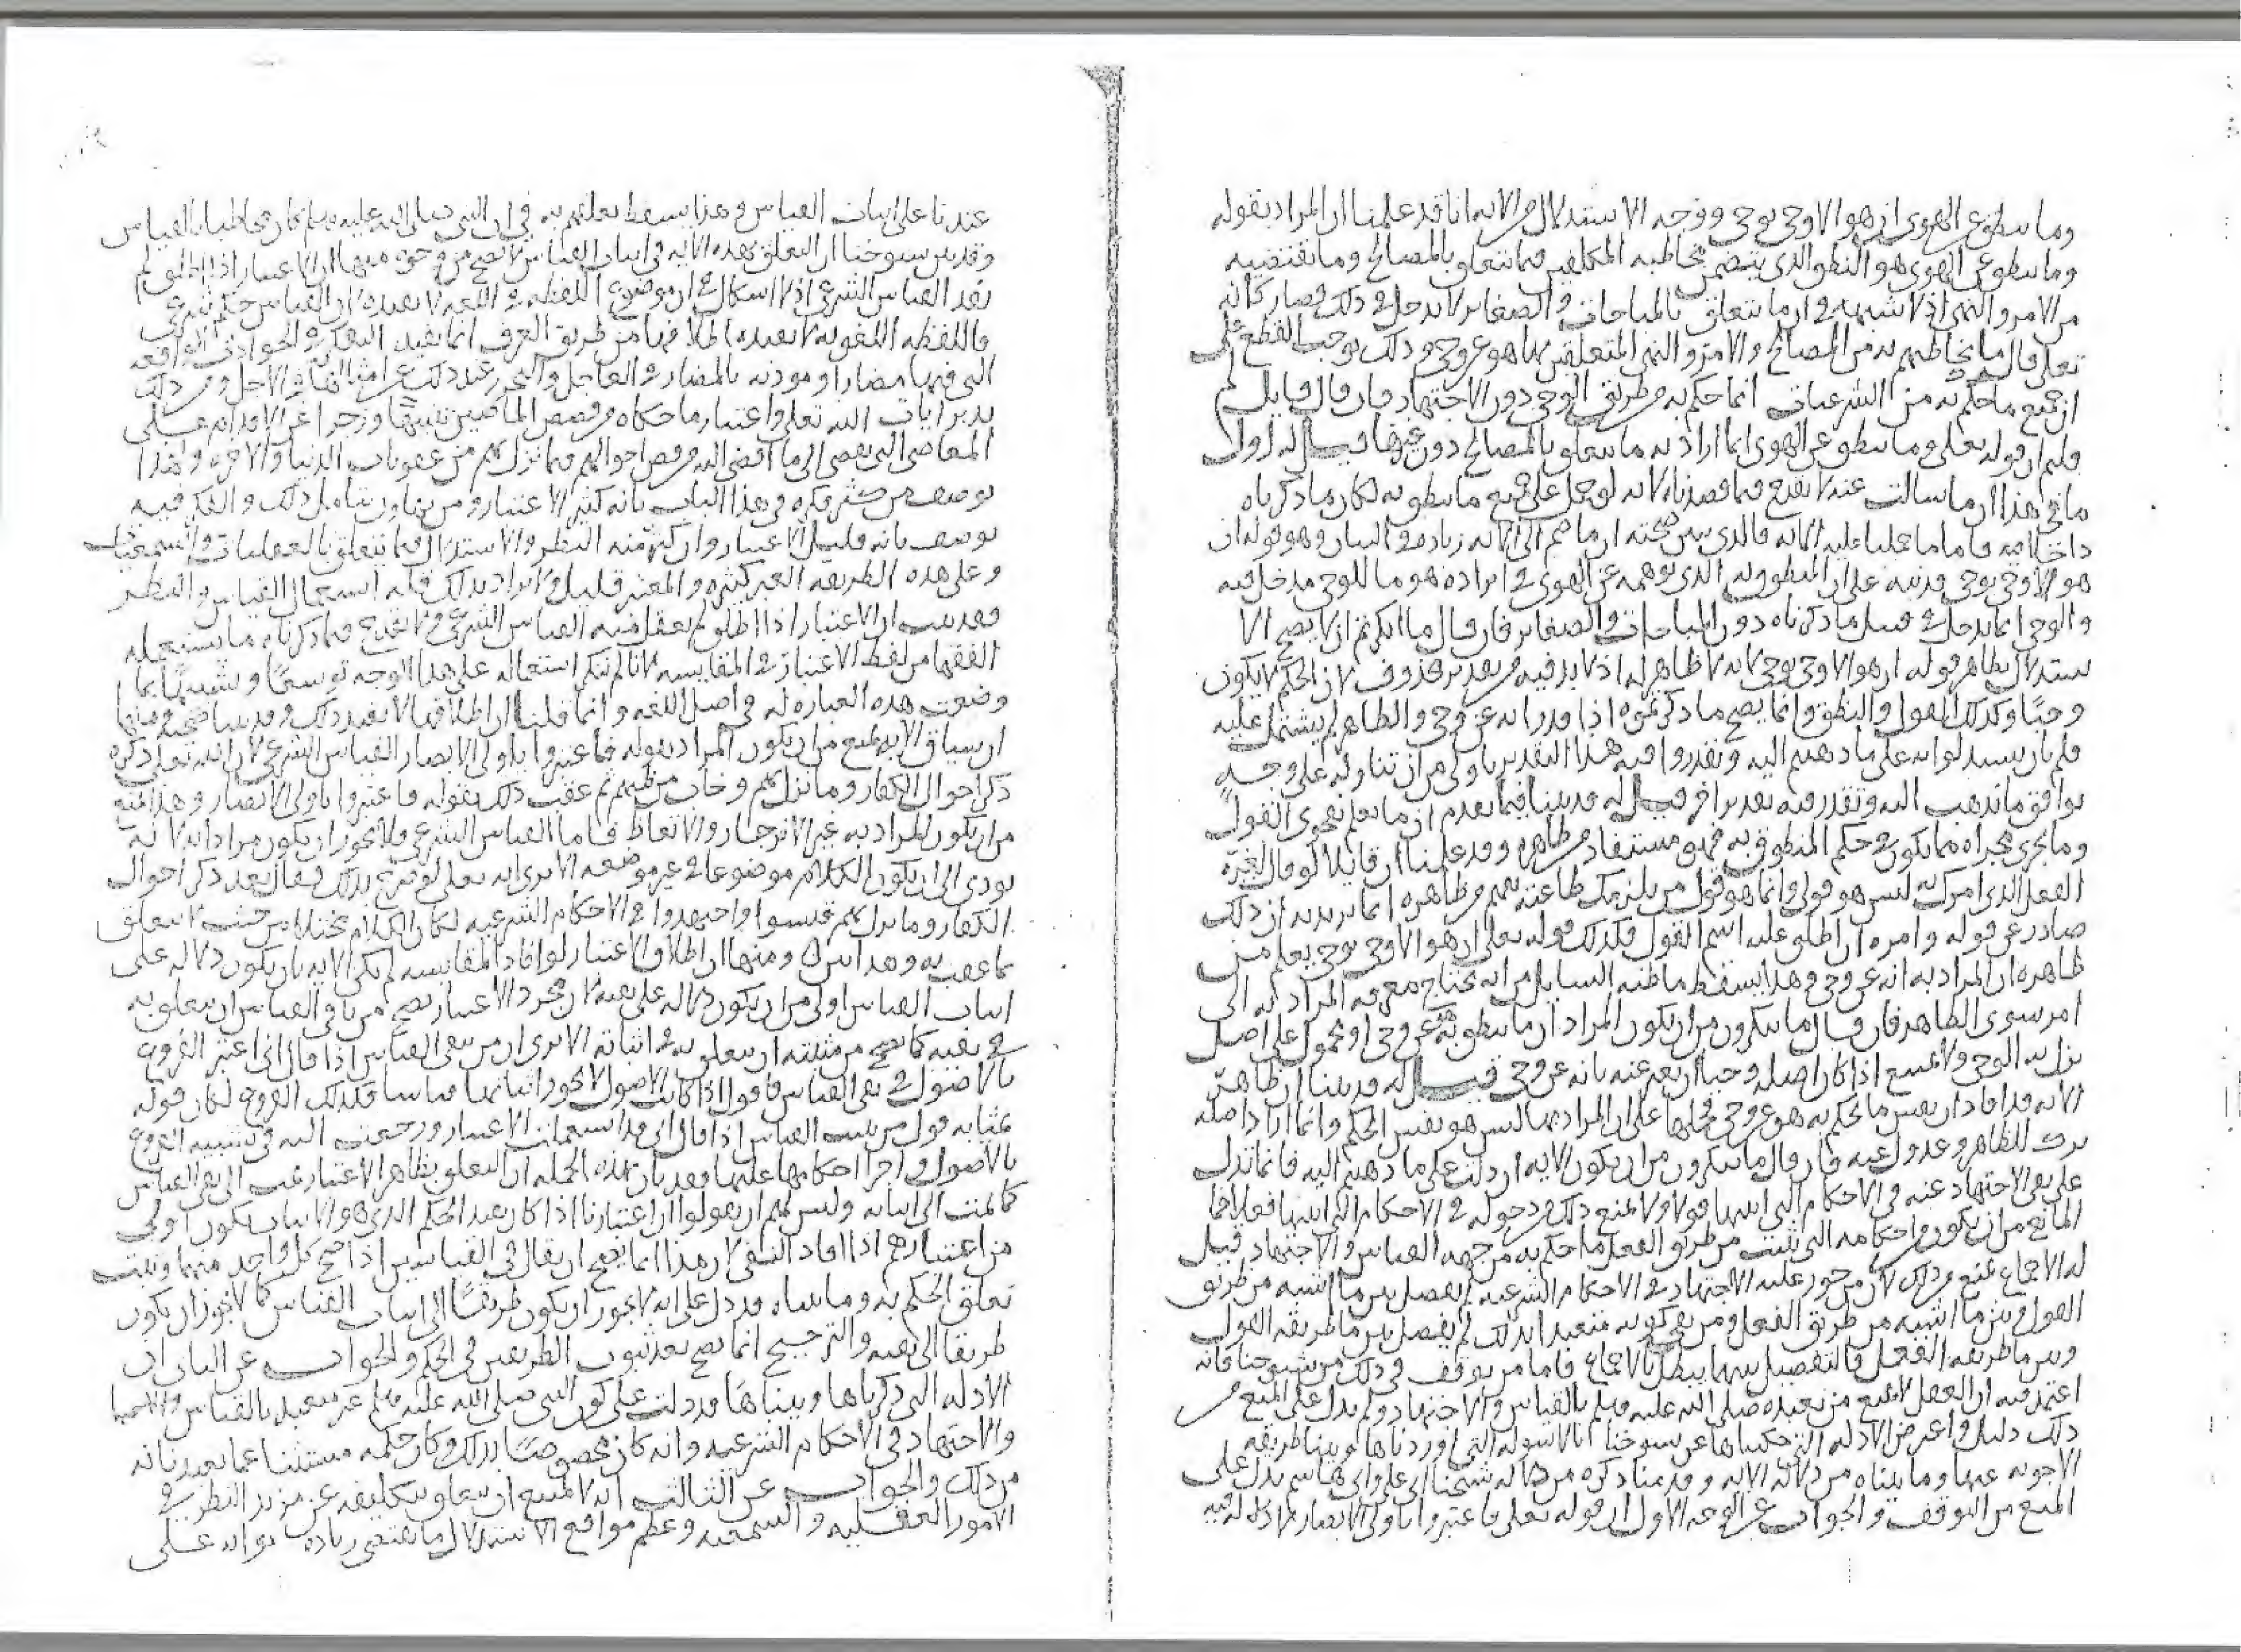 وما ينطق عن الهوى ان هو الا وحي يوحى ووجه الاستدلال من الآية انا قد علمنا ان المراد بقوله
وما ينطق عن الهوى هو النطق الذي يتضمن مخاطبة المكلفين فيما يتعلق بالمصالح وما تقتضيه
من الامر والنهي اذ لا شبهة في ان ما يتعلق بالمباحات والصغاير لا يدخل في ذلك فصار كانه
تعالى قال ما يخاطبهم به من المصالح والامر والنهي المتعلقين بها هو عن وحي وذلك يوجب القطع على
ان جميع ما حكم به من الشرعيات انما حكم به من طريق الوحي دون الاجتهاد فان قال قايل لم
قلتم ان قوله تعالى وما ينطق عن الهوى انما اراد به ما يتعلق بالمصالح دون غيرها قيل له اول
ما في هذا ان ما سالت عنه لا يقدح فيما قصدناه لانه لو حمل على جميع ما ينطق به لكان ما ذكرناه
داخلا فيه فاما ما حملنا عليه الآية فالذي يبين صحته ان ما ضم الى الآية زيادة في البيان وهو قوله ان
هو الا وحي يوحى قد نبه على ان المنطوق به الذي توهمه عن الهوى في ايراده هو ما للوحي مدخل فيه
والوحي انما يدخل في قبيل ما ذكرناه دون المباحات والصغاير فان قال ما انكرتم ان لا يصح الا
ستدلال بظاهر قوله ان هو الا وحي يوحى لانه لا ظاهر له اذ لا بد فيه من تقدير محذوف لان الحكم لا يكون
وحيًا وكذلك القول والنطق وانما يصح ما ذكرتموه اذا قدر انه عن وحي والظاهر لم يشتمل عليه
فلم بان يستدلوا به على ما ذهبتم اليه وتقدروا فيه هذا التقدير باولى من ان تتناوله على وجه
يوافق ما نذهب اليه ونقدر فيه تقديرا اخر قيل له قد بينا فيما تقدم ان ما يعلم بفحوى القول
وما يجري مجراه مما يكون في حكم المنطوق به فهو مستفاد من ظاهره وقد علمنا ان قايلا لو قال لغيره
الفعل الذي امرك به ليس هو قولي وانما هو قول من يلزمك طاعته لفهم من ظاهره انما يريد به ان ذلك
صادر عن قوله وامره ان اطلق عليه اسم القول فكذلك قوله تعالى ان هو الا وحي يوحى يعلم من
ظاهره ان المراد به انه عن وحي وهذا يسقط ما ظنه السايل من انه يحتاج معرفة المراد به الى
امر سوى الظاهر فان قال ما تنكرون من ان يكون المراد ان ما ينطق به عن وحي او محمول على اصل
نزل به الوحي ولا يمتنع اذا كان اصله وحيا ان يعبر عنه بانه عن وحي قيل له قد بينا ان ظاهر
الآية قد افاد ان نفس ما يحكم به هو عن وحي فحملها على ان المراد بها ليس هو نفس الحكم وانما اراد اصله
ترك للظاهر وعدول عنه فان قال ما تنكرون من ان يكون الآية ان دلت على ما ذهبتم اليه فانما تدل
على نفي الاجتهاد عنه في الاحكام التي اثبتها قولا ولا يمنع ذلك من دخوله في الاحكام التي اثبتها فعلا فما
المانع من ان يكون من احكامه التي تثبت من طريق الفعل ما حكم به من جهة القياس والاجتهاد قيل
له الاجماع يمنع من ذلك لان من جوز عليه الاجتهاد في الاحكام الشرعية لم يفصل بين ما اثبته من طريق
القول وبين ما اثبته من طريق الفعل ومن نفى كونه متعبدا بذلك لم يفصل بين ما طريقه القول
وبين ما طريقه الفعل فالتفصيل بينهما يبطل بالاجماع فاما من توقف في ذلك من شيوخنا فانه
اعتمد فيه ان العقل لا يمنع من تعبده صلى الله عليه وسلم بالقياس والاجتهاد ولم يدل على المنع من
ذلك دليل واعترض الادلة التي حكيناها عن شيوخنا بالاسولة التي اوردناها وبينا طريقة
الاجوبة عنها وما بيناه من دلالة الآية وقدمنا ذكره من دلالة شيخنا ابي علي وابي هاشم يدل على
المنع من التوقف والجواب عن الوجه الاول ان قوله تعالى فاعتبروا يا اولي الابصار لا دلالة فيه
عندنا على اثبات القياس وهذا يسقط تعلقهم به في ان النبي صلى الله عليه وسلم كان مخاطبا بالقياس
وقد بين شيوخنا ان التعلق بهذه الآية في اثبات القياس لا يصح من وجوه منها ان الاعتبار اذا اطلق لم
يفد القياس الشرعي اذ لا اشكال في ان موضوع اللفظة في اللغة لا يفيده لان القياس حكم شرعي
فاللفظة اللغوية لا تفيده واطلاقها من طريق العرف انما يفيد التفكر في الحوادث الواقعة
التي فيها مضار او موذنة بالمضار في العاجل والتحرز عند ذلك عن امثالها في الاجل ومن ذلك
تدبر ايات الله تعالى واعتبار ما حكاه من قصص الماضين تنبيها وزجرا عن الاقدام على
المعاصي التي تفضي الى ما اقتضى الله من قص احوالهم فيما نزل بهم من عقوبات الدنيا والآخرة ولهذا
يوصف من كثر فكره في هذا الباب بانه كثير الاعتبار ومن يتهاون بتامل ذلك والفكر فيه
يوصف بانه قليل الاعتبار وان كثر منه النظر والاستدلال فيما يتعلق بالعقليات والسمعيات
وعلى هذه الطريقة العبر كثيرة والمعتبر قليل ولا يراد بذلك قلة استعمال القياس والنظر
فقد ثبت ان الاعتبار اذا اطلق لم يعقل منه القياس الشرعي ولا يقدح فيما ذكرناه ما يستعمله
الفقها من لفظ الاعتبار في المقايسة لانا لم ننكر استعماله على هذا الوجه توسعًا وتشبيهًا بما
وضعت هذه العبارة له في اصل اللغة وانما قلنا ان اطلاقها لا يفيد ذلك وقد بينا صحته ومنها
ان سياق الآية يمنع من ان يكون المراد بقوله فاعتبروا يا اولي الابصار القياس الشرعي لان الله تعالى ذكره
ذكر احوال الكفار وما نزل بهم وخاب من ظنهم ثم عقب ذلك بقوله فاعتبروا يا اولي الابصار وهذا يمنع
من ان يكون المراد به غير الانزجار والاتعاظ فاما القياس الشرعي فلا يجوز ان يكون مرادا به لانه
يودي الى ان يكون الكلام موضوعا في غير موضعه الا ترى انه تعالى لو صرح بذلك فقال بعد ذكر احوال
الكفار وما نزل بهم قيسوا واجتهدوا في الاحكام الشرعية لكان الكلام مختلا من حيث لا يتعلق
بما عقب به وهذا بين ومنها ان اطلاق الاعتبار لو افاد المقايسة لم تكن الآية بان يكون دلالة على
اثبات القياس اولى من ان يكون دلالة على نفيه لان مجرد الاعتبار يصح من نافي القياس ان يتعلق به
في نفيه كما يصح من مثبته ان يتعلق به في اثباته الا ترى ان من نفى القياس اذا قال اني اعتبر الفروع
بالاصول في نفي القياس فاقول اذا كانت الاصول لا يجوز اثباتها قياسا فكذلك الفروع لكان قوله
بمثابة قول من يثبت القياس اذا قال اني قد استعملت الاعتبار ورجعت اليه في تشبيه الفروع
بالاصول واجرا احكامها عليها فقد بان بهذه الجملة ان التعلق بظاهر الاعتبار يمنع الى نفي القياس
كالمثبت الى اثباته وليس لهم ان يقولوا ان اعتبارنا اذا كان يفيد الحكم الذي هو الاثبات يكون اولى
من اعتبارهم اذا افاد النفي لان هذا انما يصح ان يقال في القياسين اذا صح كل واحد منهما وثبت
تعلق الحكم به وما بيناه قد دل على انه لا يجوز ان يكون طريقًا الى اثبات القياس كما لا يجوز ان يكون
طريقا الى نفيه والترجيح انما يصح بعد ثبوت الطريقين في الحكم والجواب عن الثاني ان
الادلة التي ذكرناها وبيناها قد دلت على كون النبي صلى الله عليه وسلم غير متعبد بالقياس
والاجتهاد في الاحكام الشرعية وانه كان مخصوصًا بذلك وكان حكمه مستثنا عما تعبدنا به
من ذلك والجواب عن الثالث انه لا يمتنع ان يتعلق بتكليفه عن مزيد النظر في
الامور العقلية والسمعية وعظم مواقع الاستدلال ما يقتضي زيادة ثوابه على